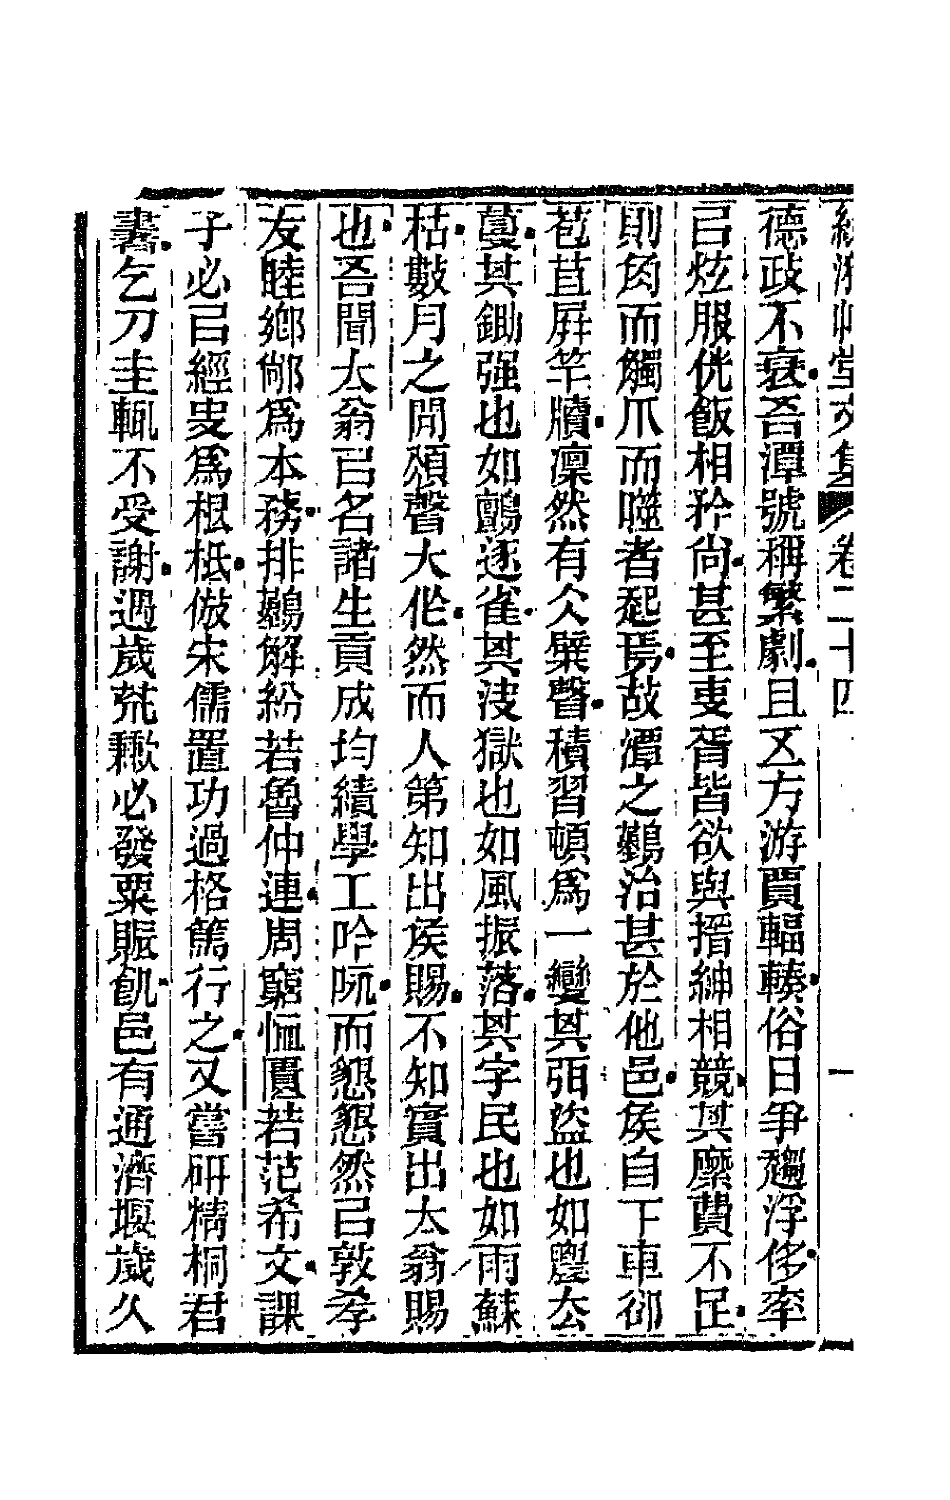 堂文集 卷二十四 一
德政不衰吾潭號稱繁劇且五方游賈輻輳俗日爭趨浮侈率
㠯炫服侊飯相矜尙甚至吏胥皆欲與搢紳相競其縻費不足
則角而觸爪而噬者起焉故潭之難治甚於他邑矦自下車卻
苞苴屛竿牘凜然有仌櫱聲積習頓爲一變其弭盜也如 厺
蔓其鋤强也如鸇逐雀其決獄也如風振落其字民也如雨蘇
枯數月之閒頌聲大作然而人第知出矦賜不知實出太翁賜
也吾聞太翁㠯名諸生貢成均績學工吟 而懇懇然㠯敦孝
友睦鄕鄰爲本務排難解紛若魯仲連周窮恤匱若范希文課
子必㠯經史爲根柢倣宋儒置功過格篤行之又嘗硏精桐君
書乞刀圭輒不受謝遇歲荒歉必發粟賑飢邑有通濟堰歲久